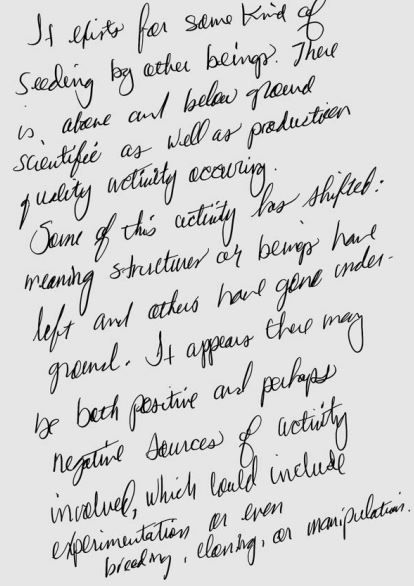 It exists for some kind of
seeding by other beings. There
is above and below ground
scientific as well as production
quality activity occuring.
Some of this activity has shifted:
meaning structures or beings have
left and others have gone under-
ground. It appears there may
be both positive and perhaps
negative sources of activity
involved, which could include
experimentation or even
breeding, cloning, or manipulation.